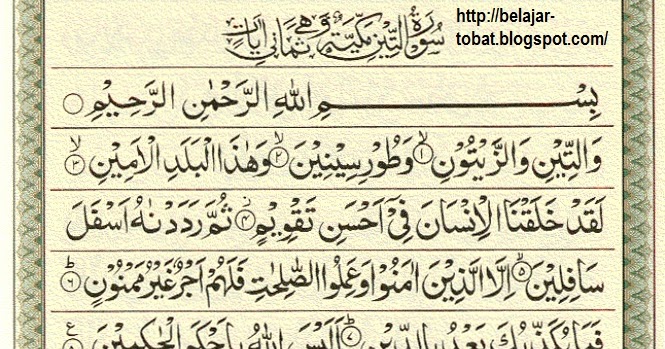 سُوْرَةُ التِّيْنِ مَكِّيَّةٌ وَّهِيَ ثَمَانِيْ اٰيَاتٍ
http://belajar-
tobat.blogspot.com/
بِسْــــــمِ اللهِ الرَّحْمٰنِ الرَّحِيْمِ
وَالتِّيْنِ وَالزَّيْتُوْنِۙ ١ وَطُوْرِ سِيْنِيْنَۙ ٢ وَهٰذَا الْبَلَدِ الْاَمِيْنِۙ ٣
لَقَدْ خَلَقْنَا الْاِنْسَانَ فِيْٓ اَحْسَنِ تَقْوِيْمٍۖ ٤ ثُمَّ رَدَدْنٰهُ اَسْفَلَ
سَافِلِيْنَۙ ٥ اِلَّا الَّذِيْنَ اٰمَنُوْا وَعَمِلُوا الصّٰلِحٰتِ فَلَهُمْ اَجْرٌ غَيْرُ مَمْنُوْنٍۗ ٦
فَمَا يُكَذِّبُكَ بَعْدُ بِالدِّيْنِۗ ٧ اَلَيْسَ اللهُ بِاَحْكَمِ الْحٰكِمِيْنَ ٨